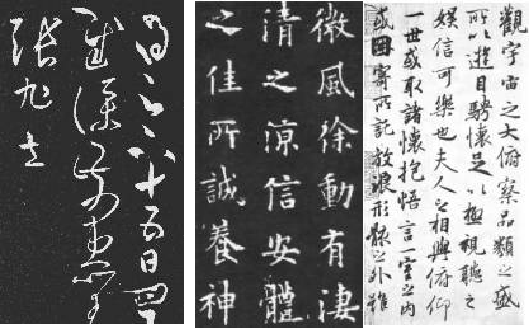 觀宇宙之大俯察品類之盛
所以遊目騁懷足以極視聽之
娛信可樂也夫人之相與俯仰
一世或取諸懷抱悟言一室之內
或因寄所託放浪形骸之外雖
微風徐動有淒
清之涼信安體
之佳所誠養神
五日
張旭